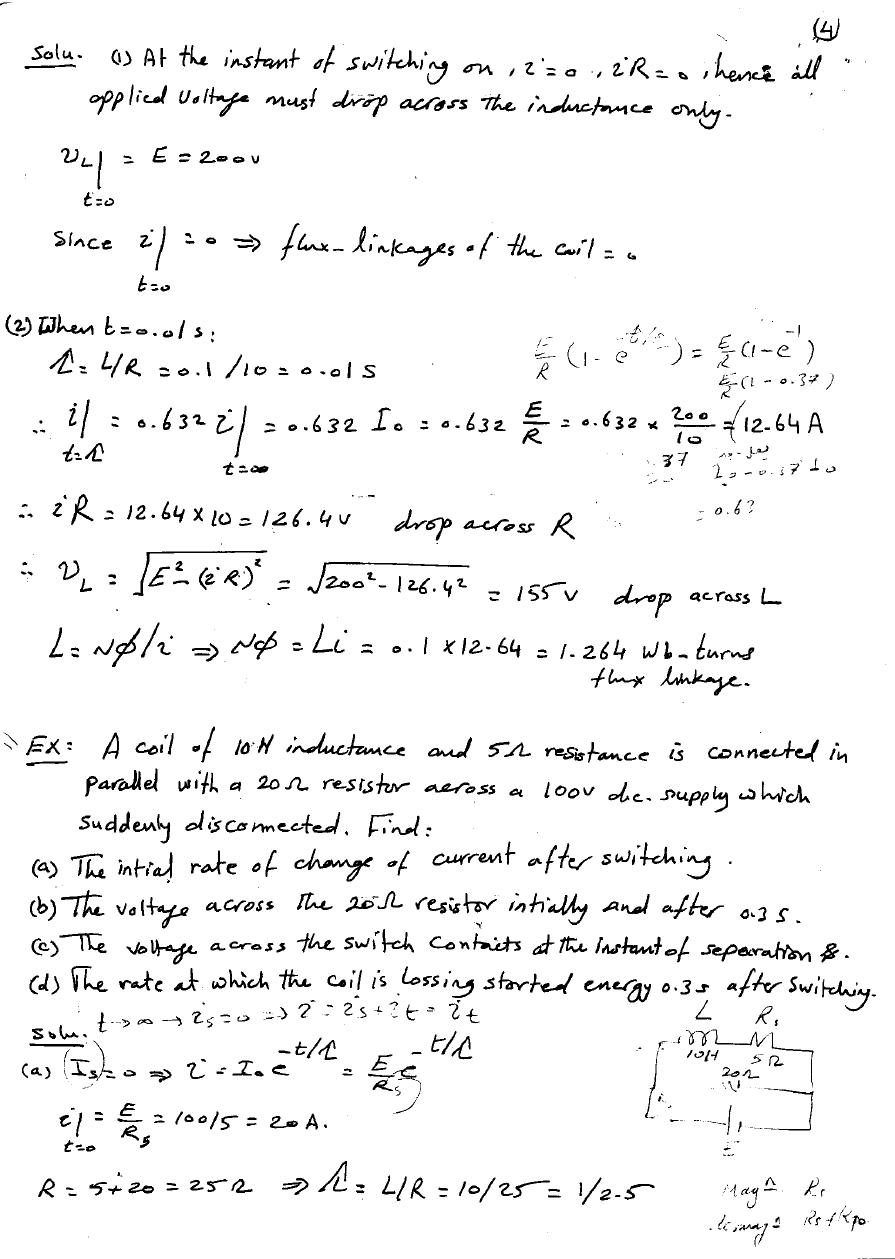 (4)
Solu. (1) At the instant of switching on, i = 0, iR = 0, hence all
applied Voltage must drop across the inductance only.
v_L| = E = 200 v
t=0
Since i| = 0 ⇒ flux-linkages of the coil = 0
t=0
(2) When t = 0.01 s:
λ = L/R = 0.1 / 10 = 0.01 s
E/R (1 - e^(-t/λ)) = E/R (1 - e^-1)
E/R (1 - 0.37)
∴ i| = 0.632 i| = 0.632 I₀ = 0.632 E/R = 0.632 × 200/10 = 12.64 A
t=λ t=∞
∴ iR = 12.64 × 10 = 126.4 v drop across R
∴ v_L = √(E² - (iR)²) = √(200² - 126.4²) = 155 v drop across L
L = Nφ/i ⇒ Nφ = Li = 0.1 × 12.64 = 1.264 Wb-turns
flux linkage.
EX: A coil of 10 H inductance and 5Ω resistance is connected in
parallel with a 20 Ω resistor across a 100 v d.c. supply which
suddenly disconnected. Find:
(a) The intial rate of change of current after switching.
(b) The voltage across the 20Ω resistor intially and after 0.3 s.
(c) The voltage across the switch contacts at the instant of separation &.
(d) The rate at which the coil is lossing started energy 0.3 s after switching.
t→∞ → i_s = 0 ⇒ i = i_s + i_t = i_t
Solu.
(a) I_s = 0 ⇒ i = I₀ e^(-t/λ) = E/R_s e^(-t/λ)
L R_s
10H 5Ω
20Ω
E
i| = E/R_s = 100/5 = 20 A.
t=0
R = 5 + 20 = 25 Ω ⇒ λ = L/R = 10/25 = 1/2.5